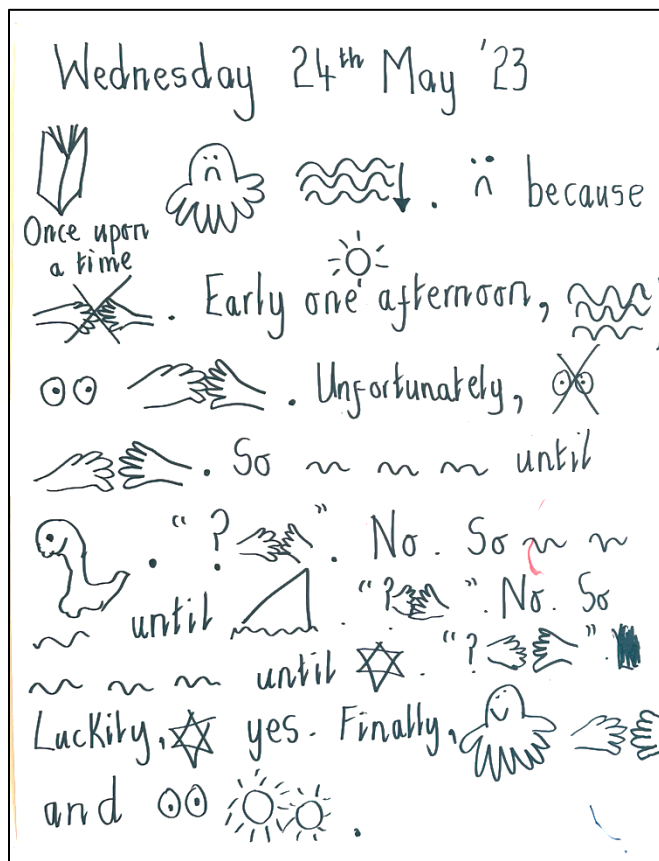 Wednesday 24th May '23
. because
Once upon
a time
. Early one afternoon,
. Unfortunately,
. So until
. "? ". No. So
until . "? ". No. So
until . "? ".
Luckily, yes. Finally,
and .